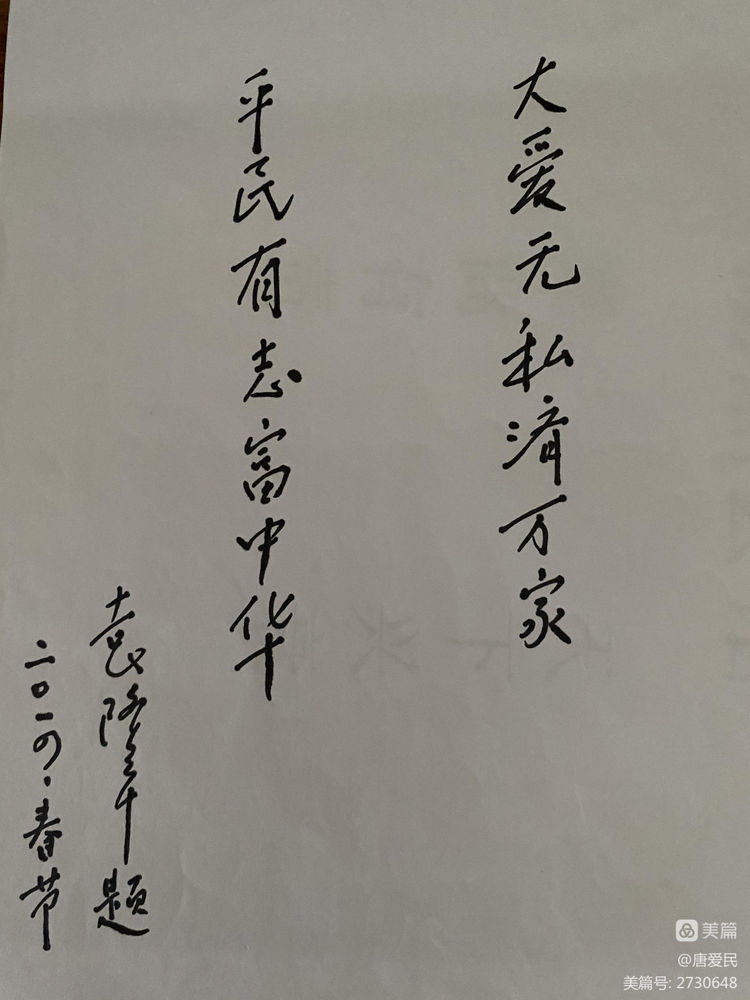 大爱无私济万家
平民有志富中华
袁隆平题
二〇一四·春节
美篇
@唐爱民
美篇号: 2730648